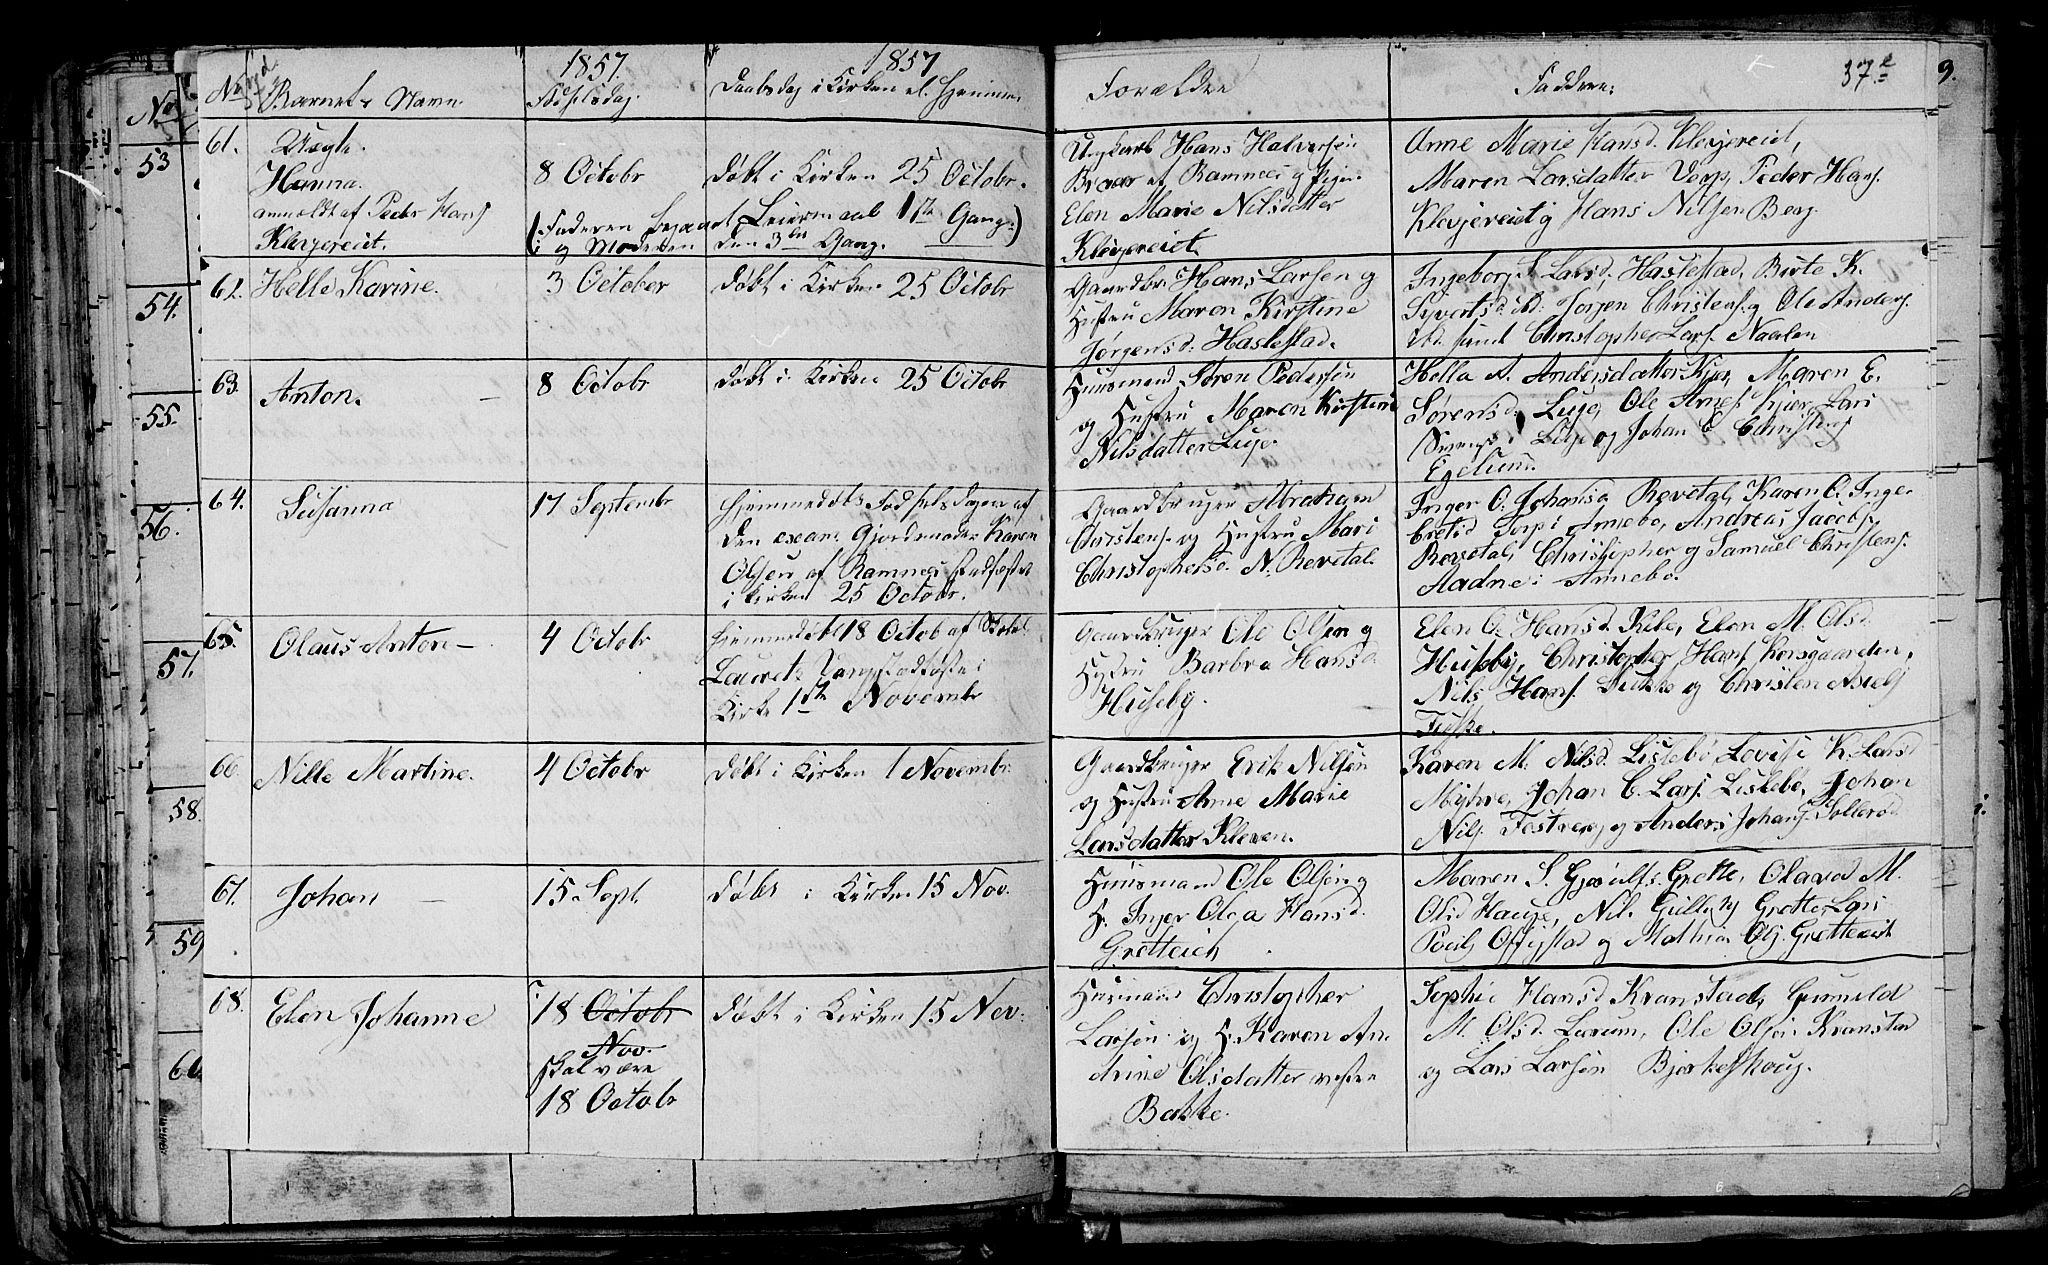 No
53
54.
55.
56.
57.
58.
59
60
1857.
1857
37
9.
No Barnets Navn.
Fødselsdag.
Daabsdag i Kirken el. Hjemme
Forældre
Faddere:
61.
Uægte.
Hanna.
anmeldt af Peder Hans
Klevjereiet.
8 Octobr
Døbt i Kirken 25 Octobr.
Leiermaal 1ste Gang.
og Moderen den 3die Gang.
Ungkarl Hans Halvorsen
af Ramnes og Pigen
Elen Marie Nilsdatter
Klevjereiet.
Anne Marie Hansd. Klevjereiet,
Maren Larsdatter Vorp, Peder Hans.
Klevjereiet og Hans Nilsen Berg.
62.
Helle Karine.
3 October
Døbt i Kirken 25 Octobr
Gaardbr. Hans Larsen og
Hustru Maren Kirstine
Jørgensd. Hastestad.
Ingeborg S. Larsd. Hastestad, Birte K.
Sivertsd. Jørgen Christens. og Ole Anders.
samt Christopher Lars. Naalen
63.
Anton.
8 Octobr
Døbt i Kirken 25 Octobr
Huusmand Søren Pedersen
og Hustru Maren Kirstine
Nilsdatter Luje.
Hella A. Andersdatter Kjær, Maren E.
Sørensd. Luje, Ole Arnes. Kjær, Lars
Luje og Johan E. Christens
Egelund.
64.
Susanna
17 Septembr
Hjemmedøbt Fødselsdagen af
den exam. Gjordemoder Karen
Olsen af Ramnes Stadfæstet
i Kirken 25 Octobr.
Gaardbruger Abraham
Christens. og Hustru Mari
Christophersd. N. Revetal.
Inger O. Johansd Revetal, Karen O. Inge-
bretsd Torp i Arnebo, Andreas Jacobs.
Revetal, Christopher og Samuel Christens.
Aadne i Arnebo.
65.
Olaus Anton
4 Octobr
Hjemmedøbt 18 Octob af
Laurets Vang Stadfæstet i
Kirke 1ste Novembr
Gaardbruger Ole Olsen og
Hustru Barbra Hansd.
Huseby.
Elen O. Hansd. Kile, Elen M. Olsd.
Huseby, Christopher Hans. Korsgaarden,
Nils Hans. Bekke og Christen Axels
Fuske.
66
Nille Martine.
4 Octobr
Døbt i Kirken 1 Novembr.
Gaardbruger Erik Nilsen
og Hustru Anne Marie
Larsdatter Kleven.
Karen M. Nilsd. Lislebø, Lovise K. Larsd
Myhre, Johan C. Lars. Lislebø, Johan
Nils. Festveg og Anders Johans. Sollerød
67.
Johan
15 Sept.
Døbt i Kirken 15 Nov.
Huusmand Ole Olsen og
H. Inger Olea Hansd.
Gretteeich
Maren S. Grette, Olava M.
Olsd Hauge, Grette, Lars
og Mathias Ols. Gretteeich
68.
Elen Johanne
18 Octobr
Nov.
skal være
18 Octobr
Døbt i Kirken 15 Nov.
Husmand Christopher
Larsen og H. Karen An-
drine Olsdatter vestre
Bakke.
Sophie Hansd Kranstad, Gunnild
M. Olsd. Lærum, Ole Olsen Kranstad
og Lars Larsen Bjerkeskoug.